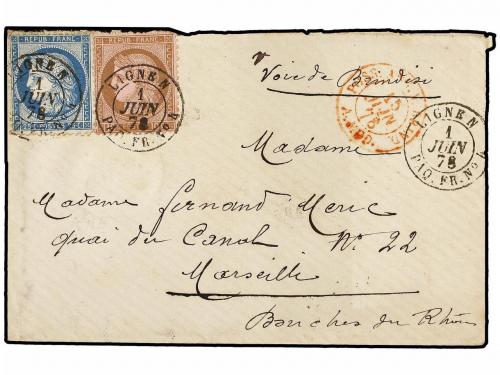 REPUB. FRANC.
REPUB. FRANC.
LIGNE N
1
JUIN
78
LIGNE N
1
JUIN
78
PAQ. FR. No 4
Voie de Brindisi
LIGNE N
1
JUIN
78
PAQ. FR. No 4
Madame
Madame Fernand Meric
quai du Canal No. 22
Marseille
Bouches du Rhône